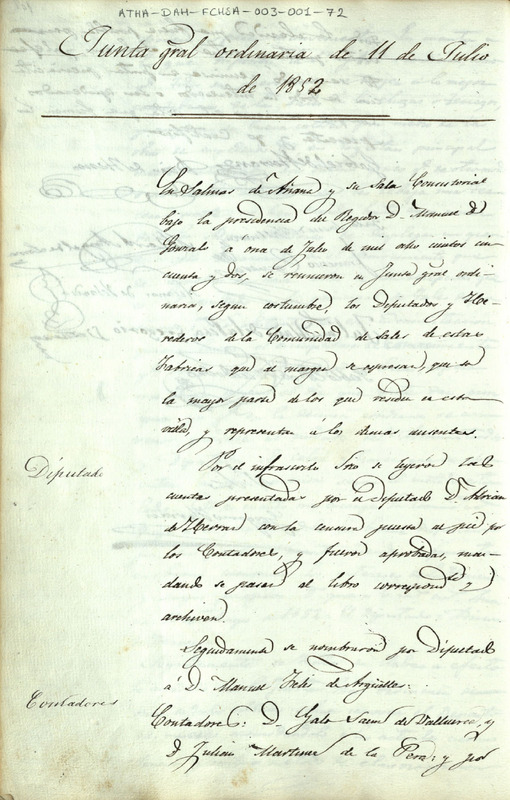 ATHA-DAH-FCHSA-003-001-72
Junta gral ordinaria de 11 de Julio
de 1852
En Salinas de Añana y su Sala Consistorial
bajo la presidencia del Regidor D. Manuel
á once de Julio de mil ocho cientos cin-
cuenta y dos, se reunieron en Junta gral ordi-
naria, segun costumbre, los Deputados y He-
rederos de la Comunidad de Sales de estas
Fabricas que al margen se espresan, que son
la mayor parte de los que residen en esta
villa, y representan á los demas ausentes.
Por el infrascrito Srio se leyerón las
cuentas presentadas por el Deputado D. Adrian
de Herran con la censura puesta al pié por
los Contadores, y fueron aprobadas, man-
dando se pasase al libro correspondte y
archiven.
Diputado
Seguidamente se nombraron por Diputado
á D. Manuel Felis de Argüelles.
Contadores
Contadores: D. Galo Saenz de Valluerca, y
D. Julian Martinez de la Pera, y por